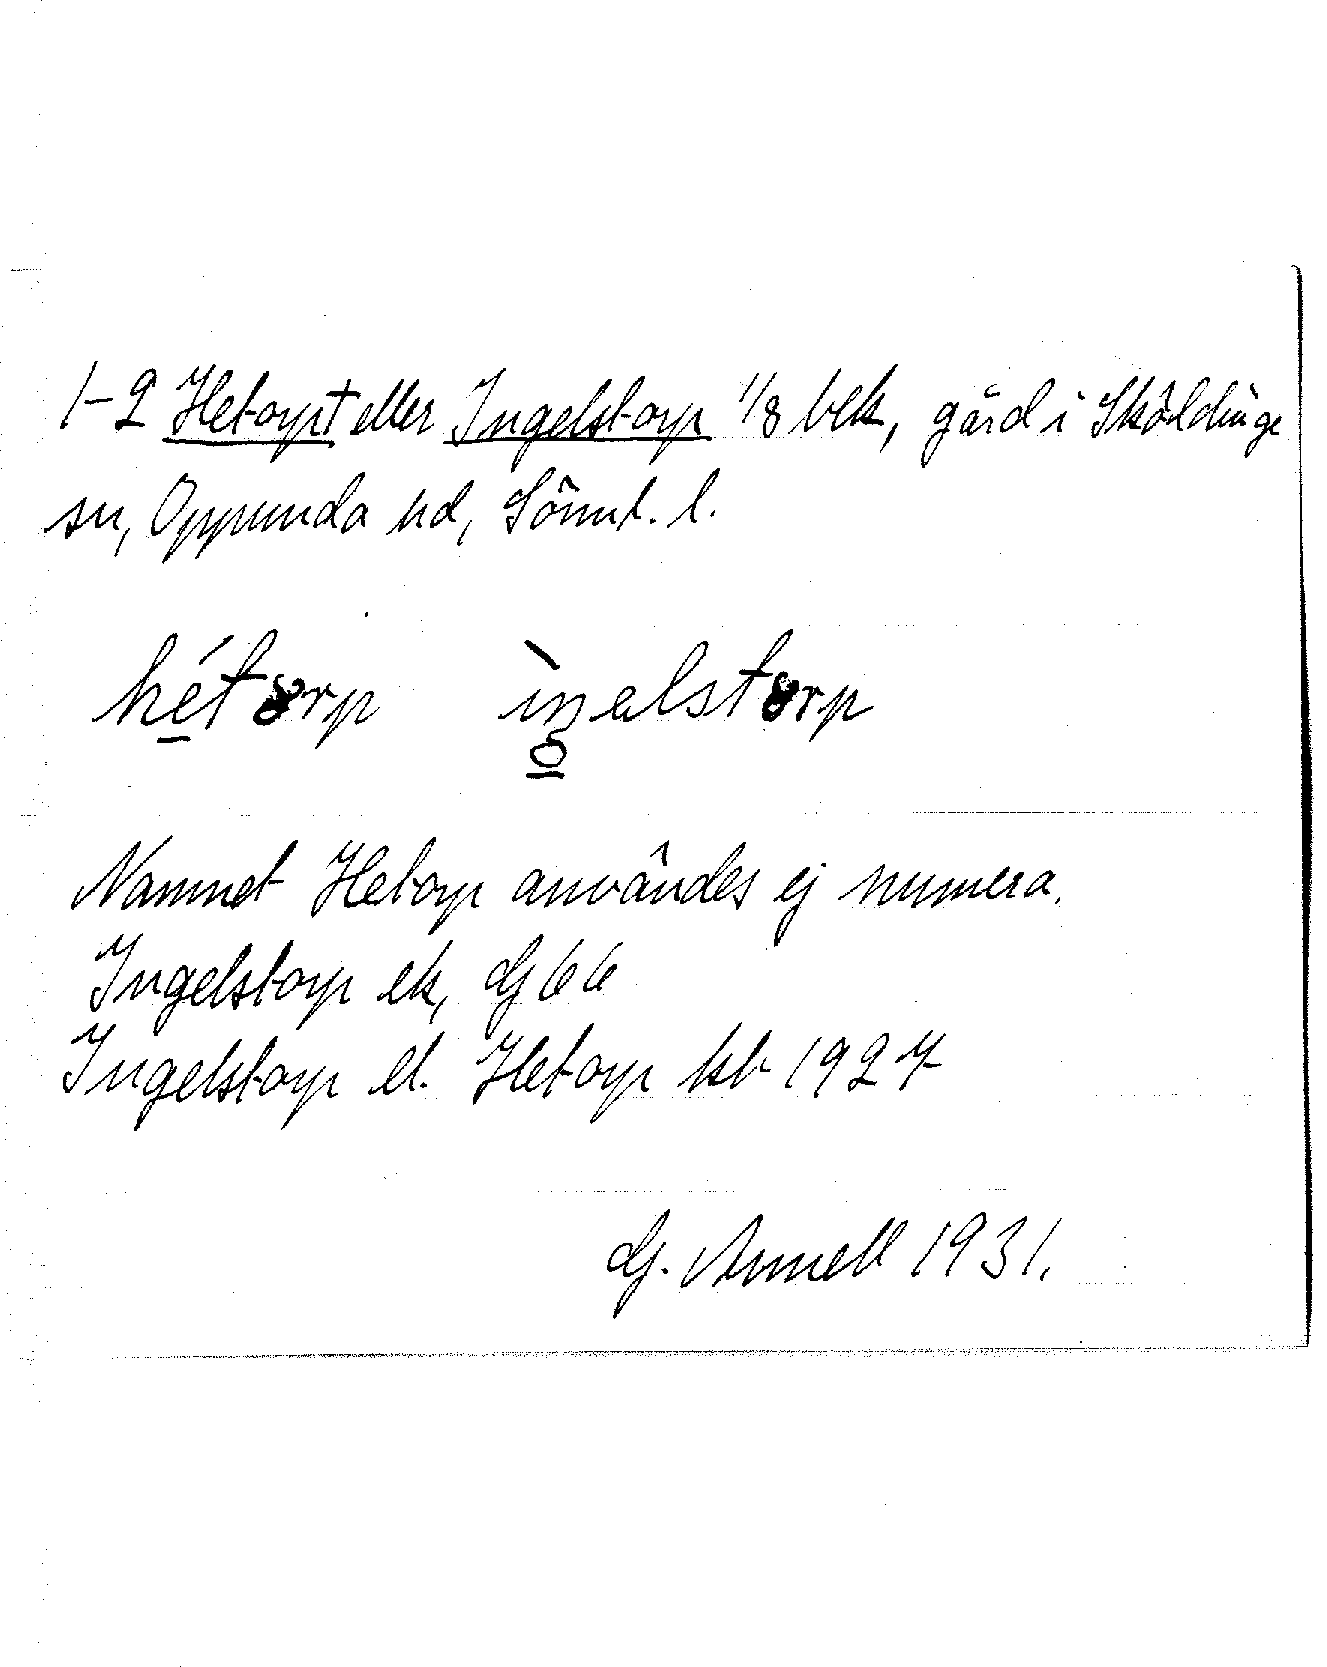 1-2 Hetorp† eller Ingelstorp 1/8 blk, gård i Sköldinge
sn, Oppunda hd, Sörml. l.
hétorp ìŋəlstorp
Namnet Hetorp användes ej numera.
Ingelstorp ek, Gj 66
Ingelstorp el. Hetorp kb 1927
G. Annell 1931.